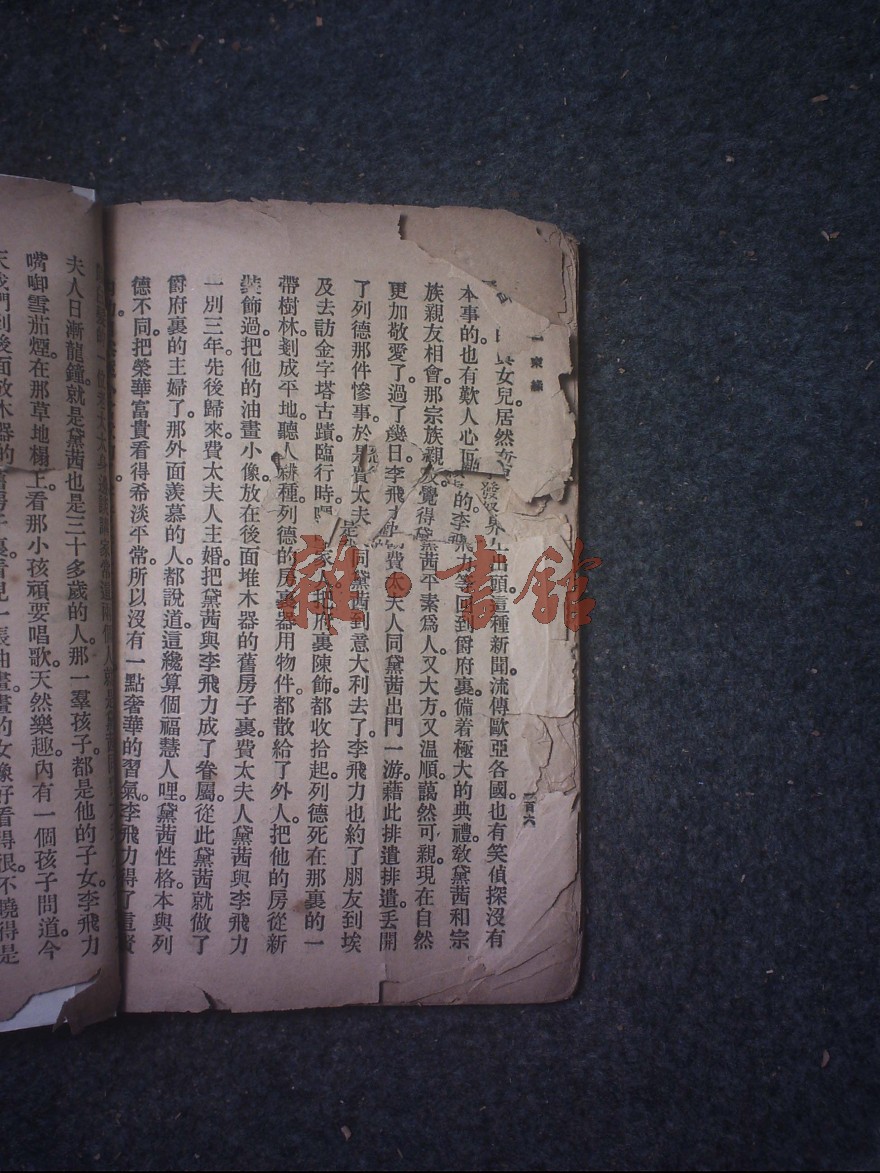 一束緣
二百六
與女兒居然
發好界生出頭這種新聞流傳歐亞各國也有笑偵探沒有
本事的也有歎人心叵
的李飛力等回到爵府裏備着極大的典禮教黛茜和宗
族親友相會那宗族親友覺得黛茜平素爲人又大方又溫順藹然可親現在自然
更加敬愛了過了幾日李飛力
費太夫人同黛茜出門一游藉此排遣排遣丟開
了列德那件慘事於是費太夫
同黛茜到意大利去了李飛力也約了朋友到埃
及去訪金字塔古蹟臨行時
把府裏陳飾都收拾起列德死在那裏的一
帶樹林剗成平地聽人耕種列德的房裏器用物件都散給了外人把他的房從新
裝飾過把他的油畫小像放在後面堆木器的舊房子裏費太夫人黛茜與李飛力
一別三年先後歸來費太夫人主婚把黛茜與李飛力成了眷屬從此黛茜就做了
爵府裏的主婦了那外面羡慕的人都說道這纔算個福慧人哩黛茜性格本與列
德不同把榮華富貴看得希淡平常所以沒有一點奢華的習氣李飛力得了這賢
夫人日漸龍鐘就是黛茜也是三十多歲的人那一羣孩子都是他的子女李飛力
嘴啣雪茄煙在那草地榻上看那小孩頑耍唱歌天然樂趣內有一個孩子問道今
天我們到後面放木器的舊房子裏看見一張油畫畫的女像好看得很不曉得是
雜·書館